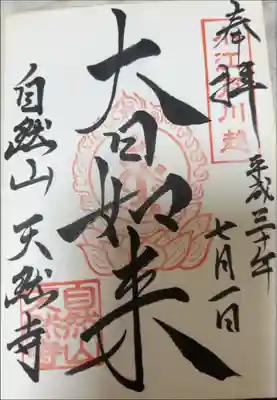 奉拝
平成三十年
七月一日
大日如来
自然山 天然寺